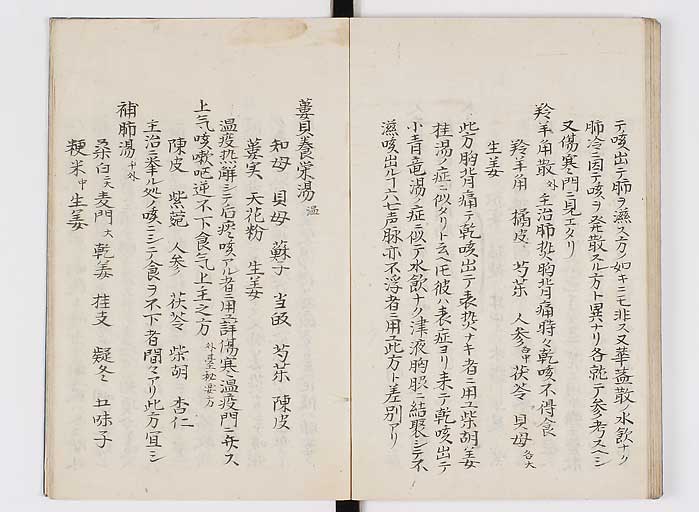 テ咳出テ肺ヲ濕ス方ノ如キニモ非ス又華蓋散ノ水飲ナク
肺冷ニ因テ咳ヲ発散スル方ト異ナリ各就テ参考スヘシ
又傷寒門ニ見エタリ
羚羊角散 外 主治肺熱胸背痛時々乾咳不得食
羚羊角 橘皮 芍藥 人参 茯苓 貝母 各大
生姜
此方胸背痛テ乾咳出テ表熱ナキ者ニ用ユ柴胡姜
桂湯ノ症ニ似タリト云ヘ𪜈彼ハ表症ヨリ来テ乾咳出テ
小青竜湯ノ症ニ似テ水飲ナク津液胸膈ニ結聚シテ不
濕咳出ルヿ六七声脉亦不浮者ニ用ユ此方ト差別アリ
蔞貝養栄湯 温
知母 貝母 蘇子 当皈 芍藥 陳皮
蔞実 天花粉 生姜
温疫熱解シテ后痰咳アル者ニ用ユ詳傷寒温疫門ニ弁ス
上气咳嗽呕逆不下食气上主之方 外臺秘
陳皮 紫菀 人参 茯苓 柴胡 杏仁
主治ニ挙ル処ノ咳ニシテ食ヲ不下者間々アリ此方宜シ
補肺湯 千外
桑白 大 麦門 大 乾姜 桂支 疑冬 五味子
粳米 中 生姜